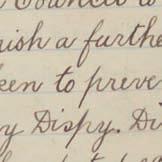 Council to
nish a furthe
ken to preve
y Dispy. Di